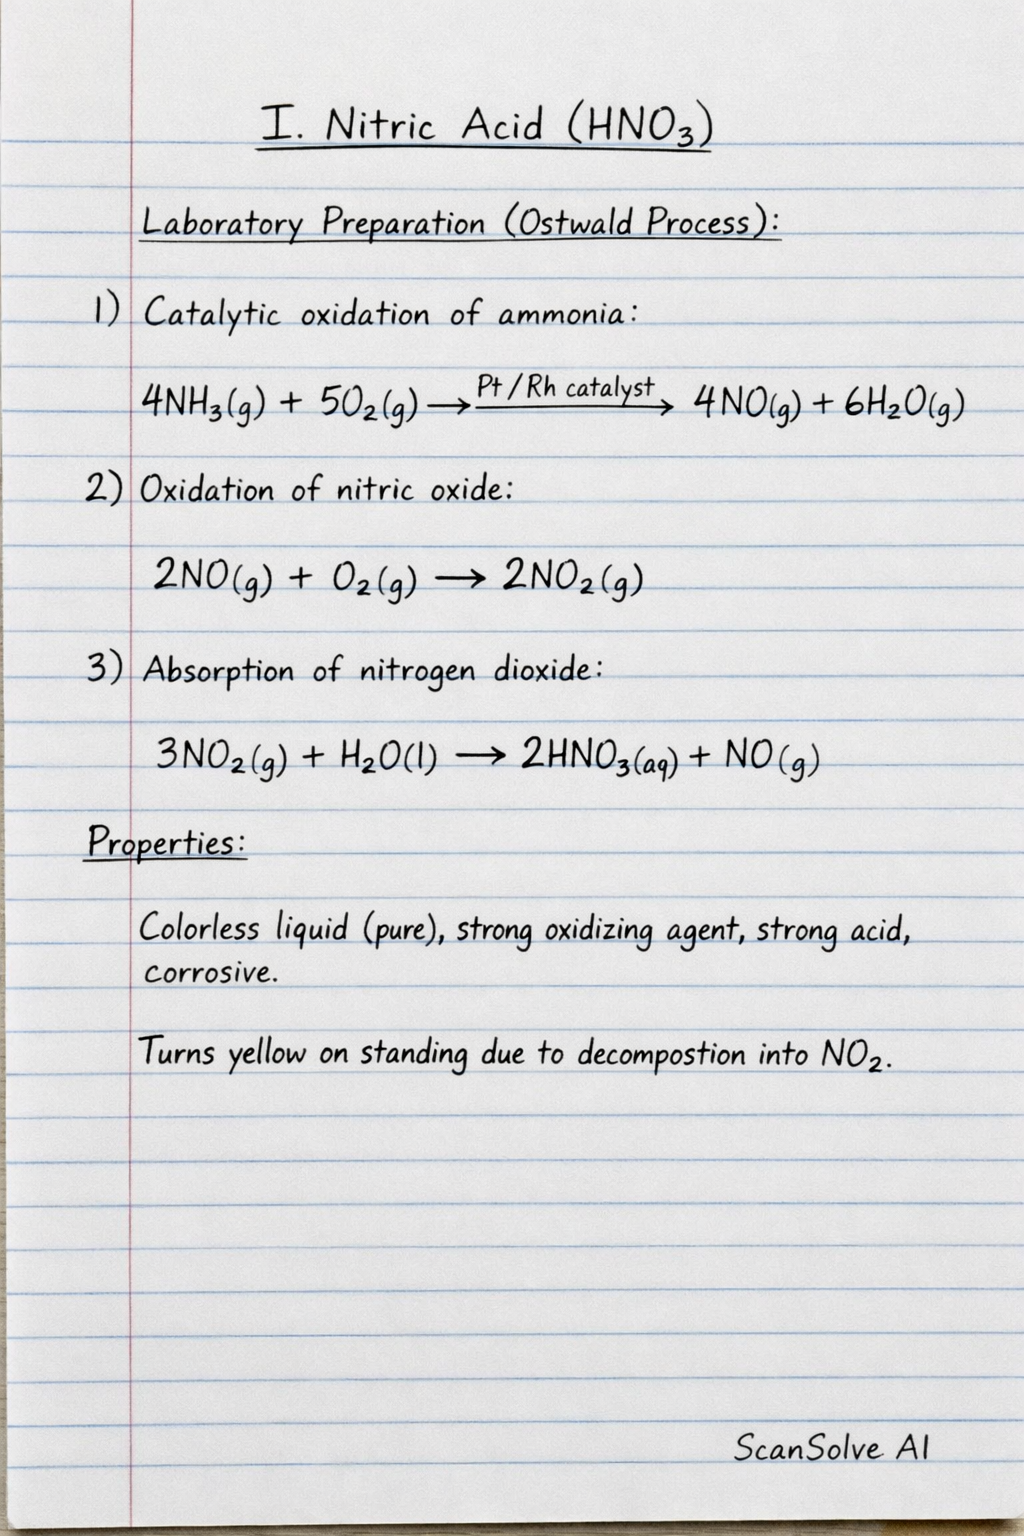 I. Nitric Acid (HNO₃)
Laboratory Preparation (Ostwald Process):
1) Catalytic oxidation of ammonia:
4NH₃(g) + 5O₂(g) ⟶ Pt/Rh catalyst ⟶ 4NO(g) + 6H₂O(g)
2) Oxidation of nitric oxide:
2NO(g) + O₂(g) ⟶ 2NO₂(g)
3) Absorption of nitrogen dioxide:
3NO₂(g) + H₂O(l) ⟶ 2HNO₃(aq) + NO(g)
Properties:
Colorless liquid (pure), strong oxidizing agent, strong acid,
corrosive.
Turns yellow on standing due to decompostion into NO₂.
ScanSolve AI